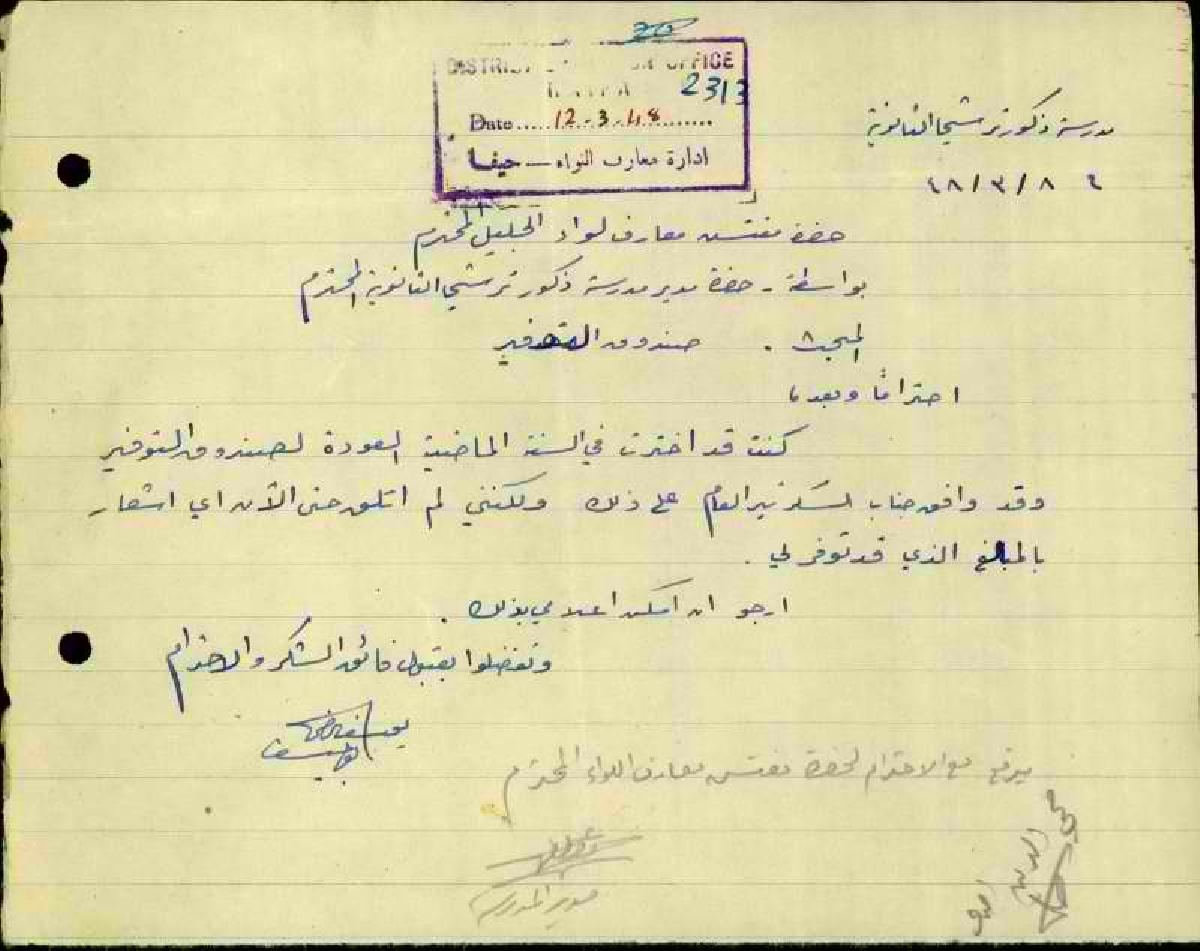 20
DISTRICT OFFICE
2313
Date ..... 12-3-48 .......
ادارة معارف اللواء — حيفا
مدرسة ذكور ترشيحا الثانوية
٤٨/٣/٨
حضرة مفتش معارف لواء الجليل المحترم
بواسطة - حضرة مدير مدرسة ذكور ترشيحا الثانوية المحترم
المبحث . صندوق التوفير
احتراما وبعد ،
كنت قد اخترت في السنة الماضية العودة لصندوق التوفير
وقد وافق جناب السكرتير العام على ذلك ولكنني لم اتلق حتى الآن اي اشعار
بالمبلغ الذي قد توفر لي .
ارجو ان امكن اعلامي بذلك .
وتفضلوا بقبول فائق الشكر والاحترام
يرفع مع الاحترام لحضرة مفتش معارف اللواء المحترم
مدير المدرسة